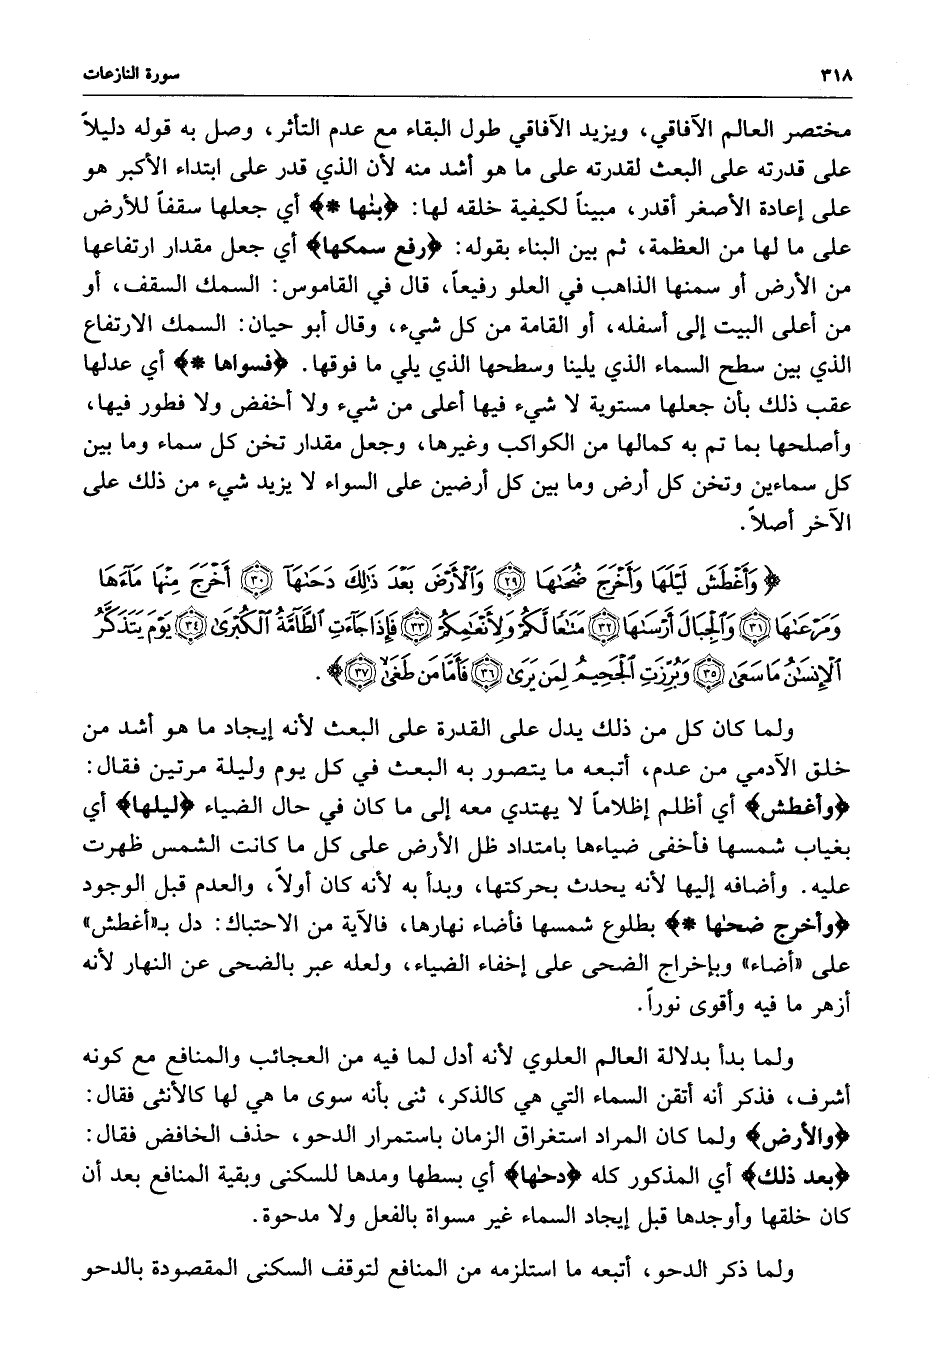 ٣١٨ سورة النازعات
مختصر العالم الآفاقي، ويزيد الآفاقي طول البقاء مع عدم التأثر، وصل به قوله دليلاً
على قدرته على البعث لقدرته على ما هو أشد منه لأن الذي قدر على ابتداء الأكبر هو
على إعادة الأصغر أقدر، مبيناً لكيفية خلقه لها: ﴿بنٰها *﴾ أي جعلها سقفاً للأرض
على ما لها من العظمة، ثم بين البناء بقوله: ﴿رفع سمكها﴾ أي جعل مقدار ارتفاعها
من الأرض أو سمنها الذاهب في العلو رفيعاً، قال في القاموس: السمك السقف، أو
من أعلى البيت إلى أسفله، أو القامة من كل شيء، وقال أبو حيان: السمك الارتفاع
الذي بين سطح السماء الذي يلينا وسطحها الذي يلي ما فوقها. ﴿فسواها *﴾ أي عدلها
عقب ذلك بأن جعلها مستوية لا شيء فيها أعلى من شيء ولا أخفض ولا فطور فيها،
وأصلحها بما تم به كمالها من الكواكب وغيرها، وجعل مقدار تخن كل سماء وما بين
كل سماءين وتخن كل أرض وما بين كل أرضين على السواء لا يزيد شيء من ذلك على
الآخر أصلاً.
﴿وَأَغْطَشَ لَيْلَهَا وَأَخْرَجَ ضُحَىٰهَا ٢٩ وَٱلْأَرْضَ بَعْدَ ذَٰلِكَ دَحَىٰهَآ ٣٠ أَخْرَجَ مِنْهَا مَآءَهَا
وَمَرْعَىٰهَا ٣١ وَٱلْجِبَالَ أَرْسَىٰهَا ٣٢ مَتَٰعًا لَّكُمْ وَلِأَنْعَٰمِكُمْ ٣٣ فَإِذَا جَآءَتِ ٱلطَّآمَّةُ ٱلْكُبْرَىٰ ٣٤ يَوْمَ يَتَذَكَّرُ
ٱلْإِنسَٰنُ مَا سَعَىٰ ٣٥ وَبُرِّزَتِ ٱلْجَحِيمُ لِمَن يَرَىٰ ٣٦ فَأَمَّا مَن طَغَىٰ ٣٧﴾.
ولما كان كل من ذلك يدل على القدرة على البعث لأنه إيجاد ما هو أشد من
خلق الآدمي من عدم، أتبعه ما يتصور به البعث في كل يوم وليلة مرتين فقال:
﴿وأغطش﴾ أي أظلم إظلاماً لا يهتدي معه إلى ما كان في حال الضياء ﴿ليلها﴾ أي
بغياب شمسها فأخفى ضياءها بامتداد ظل الأرض على كل ما كانت الشمس ظهرت
عليه. وأضافه إليها لأنه يحدث بحركتها، وبدأ به لأنه كان أولاً، والعدم قبل الوجود
﴿وأخرج ضحٰها *﴾ بطلوع شمسها فأضاء نهارها، فالآية من الاحتباك: دل بـ«أغطش»
على «أضاء» وبإخراج الضحى على إخفاء الضياء، ولعله عبر بالضحى عن النهار لأنه
أزهر ما فيه وأقوى نوراً.
ولما بدأ بدلالة العالم العلوي لأنه أدل لما فيه من العجائب والمنافع مع كونه
أشرف، فذكر أنه أتقن السماء التي هي كالذكر، ثنى بأنه سوى ما هي لها كالأنثى فقال:
﴿والأرض﴾ ولما كان المراد استغراق الزمان باستمرار الدحو، حذف الخافض فقال:
﴿بعد ذلك﴾ أي المذكور كله ﴿دحٰها﴾ أي بسطها ومدها للسكنى وبقية المنافع بعد أن
كان خلقها وأوجدها قبل إيجاد السماء غير مسواة بالفعل ولا مدحوة.
ولما ذكر الدحو، أتبعه ما استلزمه من المنافع لتوقف السكنى المقصودة بالدحو